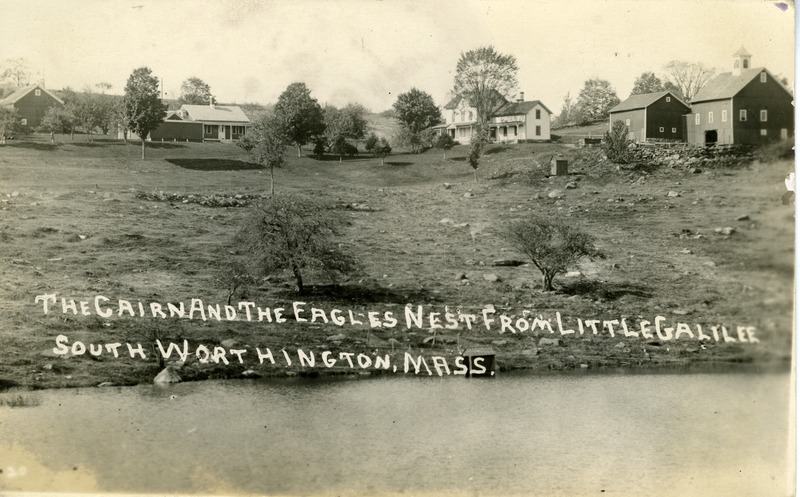 THE CAIRN AND THE EAGLES NEST FROM LITTLE GALILEE
SOUTH WORTHINGTON, MASS.